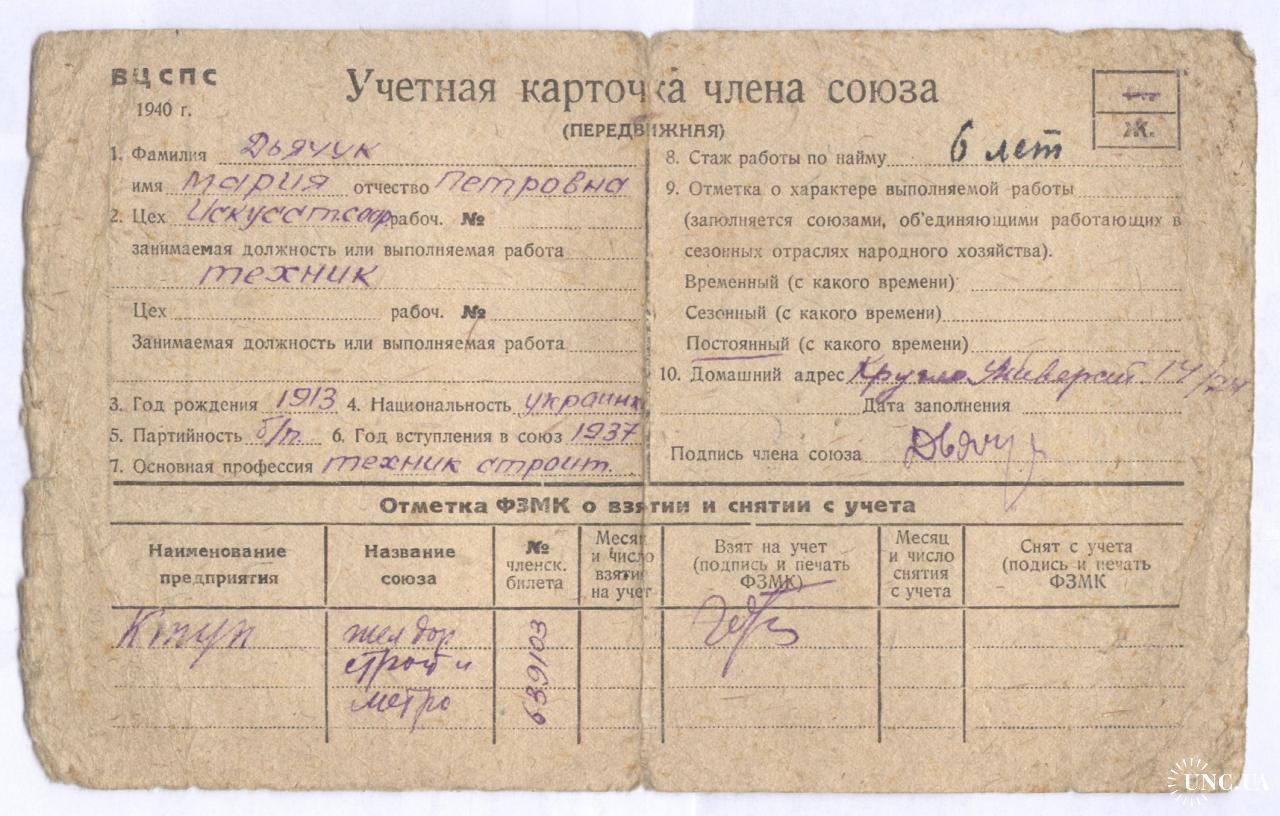 ВЦСПС
1940 г.
Учетная карточка члена союза
(ПЕРЕДВИЖНАЯ)
Ж.
1. Фамилия Дьячук
имя Мария отчество Петровна
2. Цех Искусст.соор. рабоч. №
занимаемая должность или выполняемая работа
техник
Цех рабоч. №
Занимаемая должность или выполняемая работа
3. Год рождения 1913 4. Национальность украинк
5. Партийность б/п. 6. Год вступления в союз 1937
7. Основная профессия техник строит.
8. Стаж работы по найму 6 лет
9. Отметка о характере выполняемой работы
(заполняется союзами, об'единяющими работающих в
сезонных отраслях народного хозяйства).
Временный (с какого времени)
Сезонный (с какого времени)
Постоянный (с какого времени)
10. Домашний адрес Кругло Университ. 14/24
Дата заполнения
Подпись члена союза Дьячу
Отметка ФЗМК о взятии и снятии с учета
Наименование предприятия
Название союза
№ членск. билета
Месяц и число взятия на учет
Взят на учет (подпись и печать ФЗМК)
Месяц и число снятия с учета
Снят с учета (подпись и печать ФЗМК
жел дор
строит и
метро
639103
UNC.UA